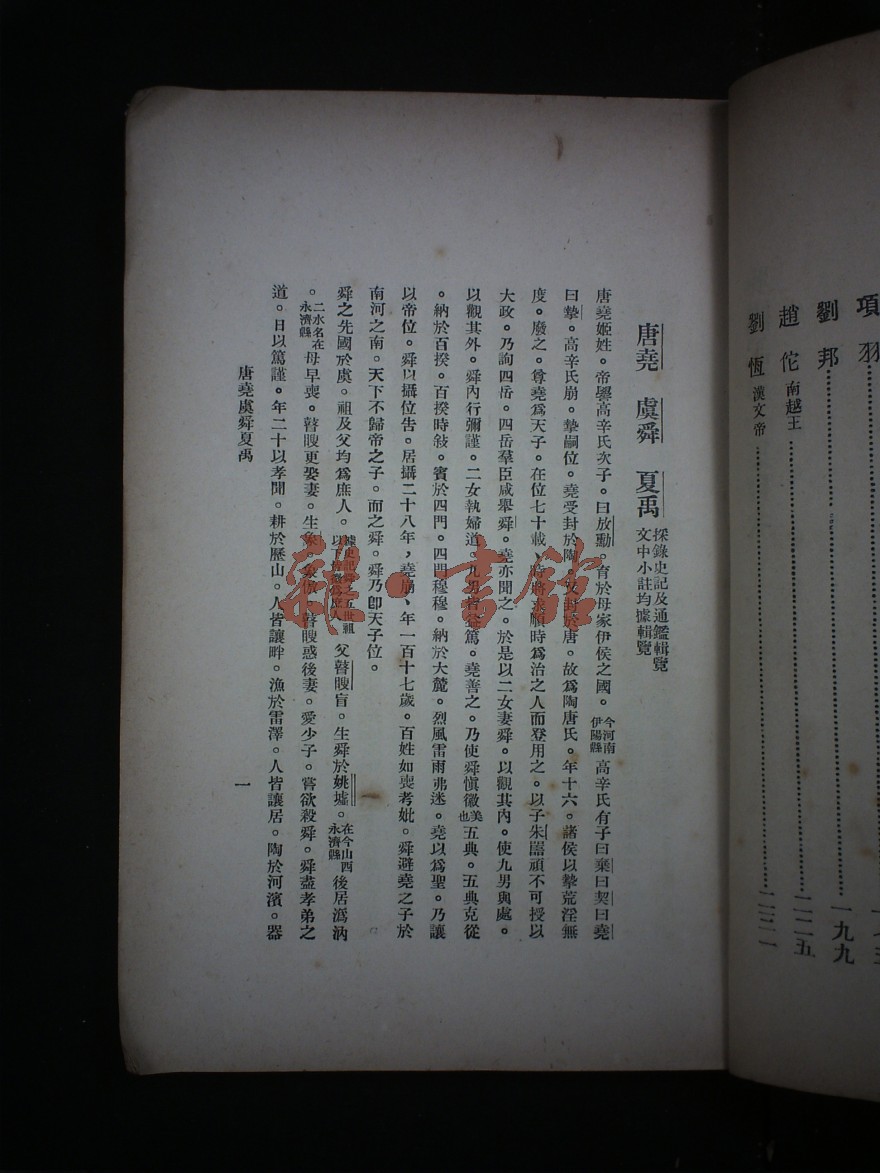 項羽
劉邦 一九九
趙佗 南越王 二二五
劉恆 漢文帝 二三一
唐堯 虞舜 夏禹 採錄史記及通鑑輯覽
文中小註均據輯覽
唐堯姬姓。帝嚳高辛氏次子。曰放勳。育於母家伊侯之國。今河南伊陽縣 高辛氏有子曰棄曰契曰堯
曰摯。高辛氏崩。摯嗣位。堯受封於陶。又封於唐。故爲陶唐氏。年十六。諸侯以摯荒淫無
度。廢之。尊堯爲天子。在位七十載、時將求順時爲治之人而登用之。以子朱嚚頑不可授以
大政。乃詢四岳。四岳羣臣咸舉舜。堯亦聞之。於是以二女妻舜。以觀其內。使九男與處。
以觀其外。舜內行彌謹。二女執婦道。九男皆益篤。堯善之。乃使舜愼徽美也五典。五典克從
。納於百揆。百揆時敍。賓於四門。四門穆穆。納於大麓。烈風雷雨弗迷。堯以爲聖。乃讓
以帝位。舜以攝位告。居攝二十八年，堯崩、年一百十七歲。百姓如喪考妣。舜避堯之子於
南河之南。天下不歸帝之子。而之舜。舜乃卽天子位。
舜之先國於虞。祖及父均爲庶人。據史記舜之五世祖以下皆微爲庶人 父瞽瞍盲。生舜於姚墟。在今山西永濟縣 後居溈汭
。二水名在永濟縣 母早喪。瞽瞍更娶妻。生象。象傲。瞽瞍惑後妻。愛少子。嘗欲殺舜。舜盡孝弟之
道。日以篤謹。年二十以孝聞。耕於歷山。人皆讓畔。漁於雷澤。人皆讓居。陶於河濱。器
唐堯虞舜夏禹
一
雜·書館